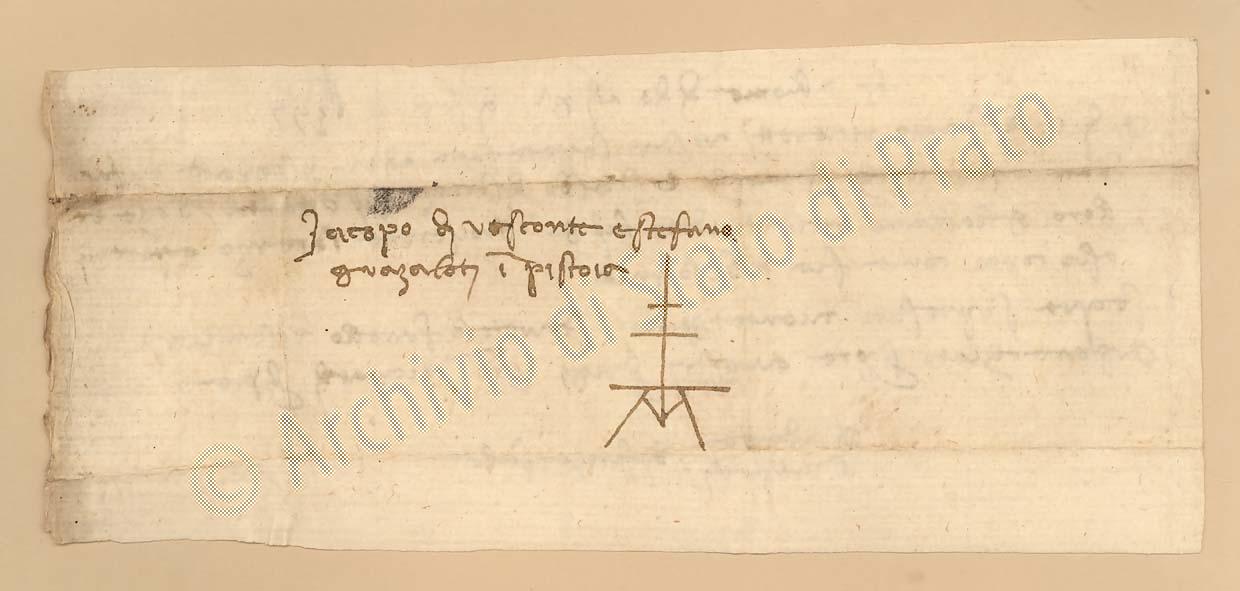 Jacopo di vesconte e stefano
guazaloti ī pistoia
© Archivio di Stato di Prato